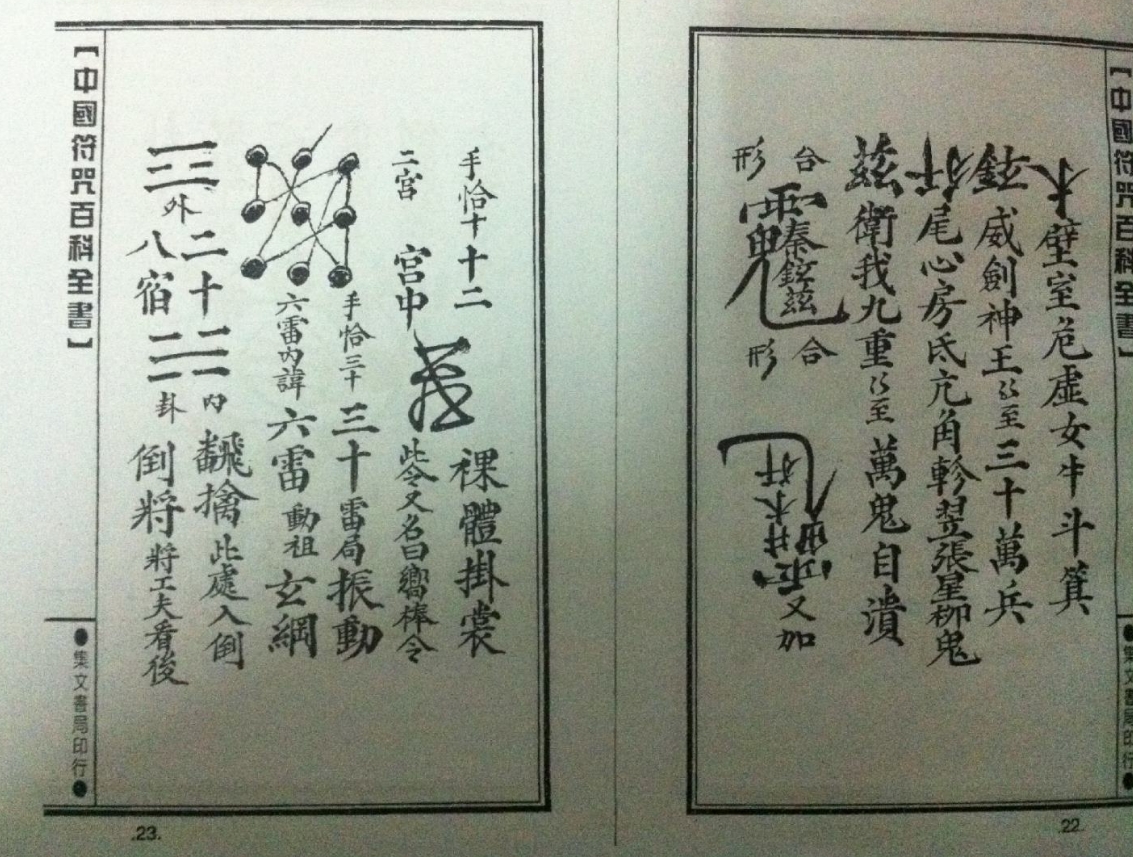 【中國符咒百科全書】
壁室危虛女牛斗箕
威劍神王至三十萬兵
尾心房氐亢角軫翌張星柳鬼
衛我九重至萬鬼自潰
合
形
秦鉉茲
合
形
又加
●集文書局印行●
.22.
手恰十十二
裸體掛裳
二宮
宮中
此令又名曰嚮棒令
手恰三十
三十雷局振動
六雷內諱
六雷動祖玄綱
二十
內
飜擒此處入倒
外
八宿
卦
倒將將工夫看後
【中國符咒百科全書】
●集文書局印行●
.23.